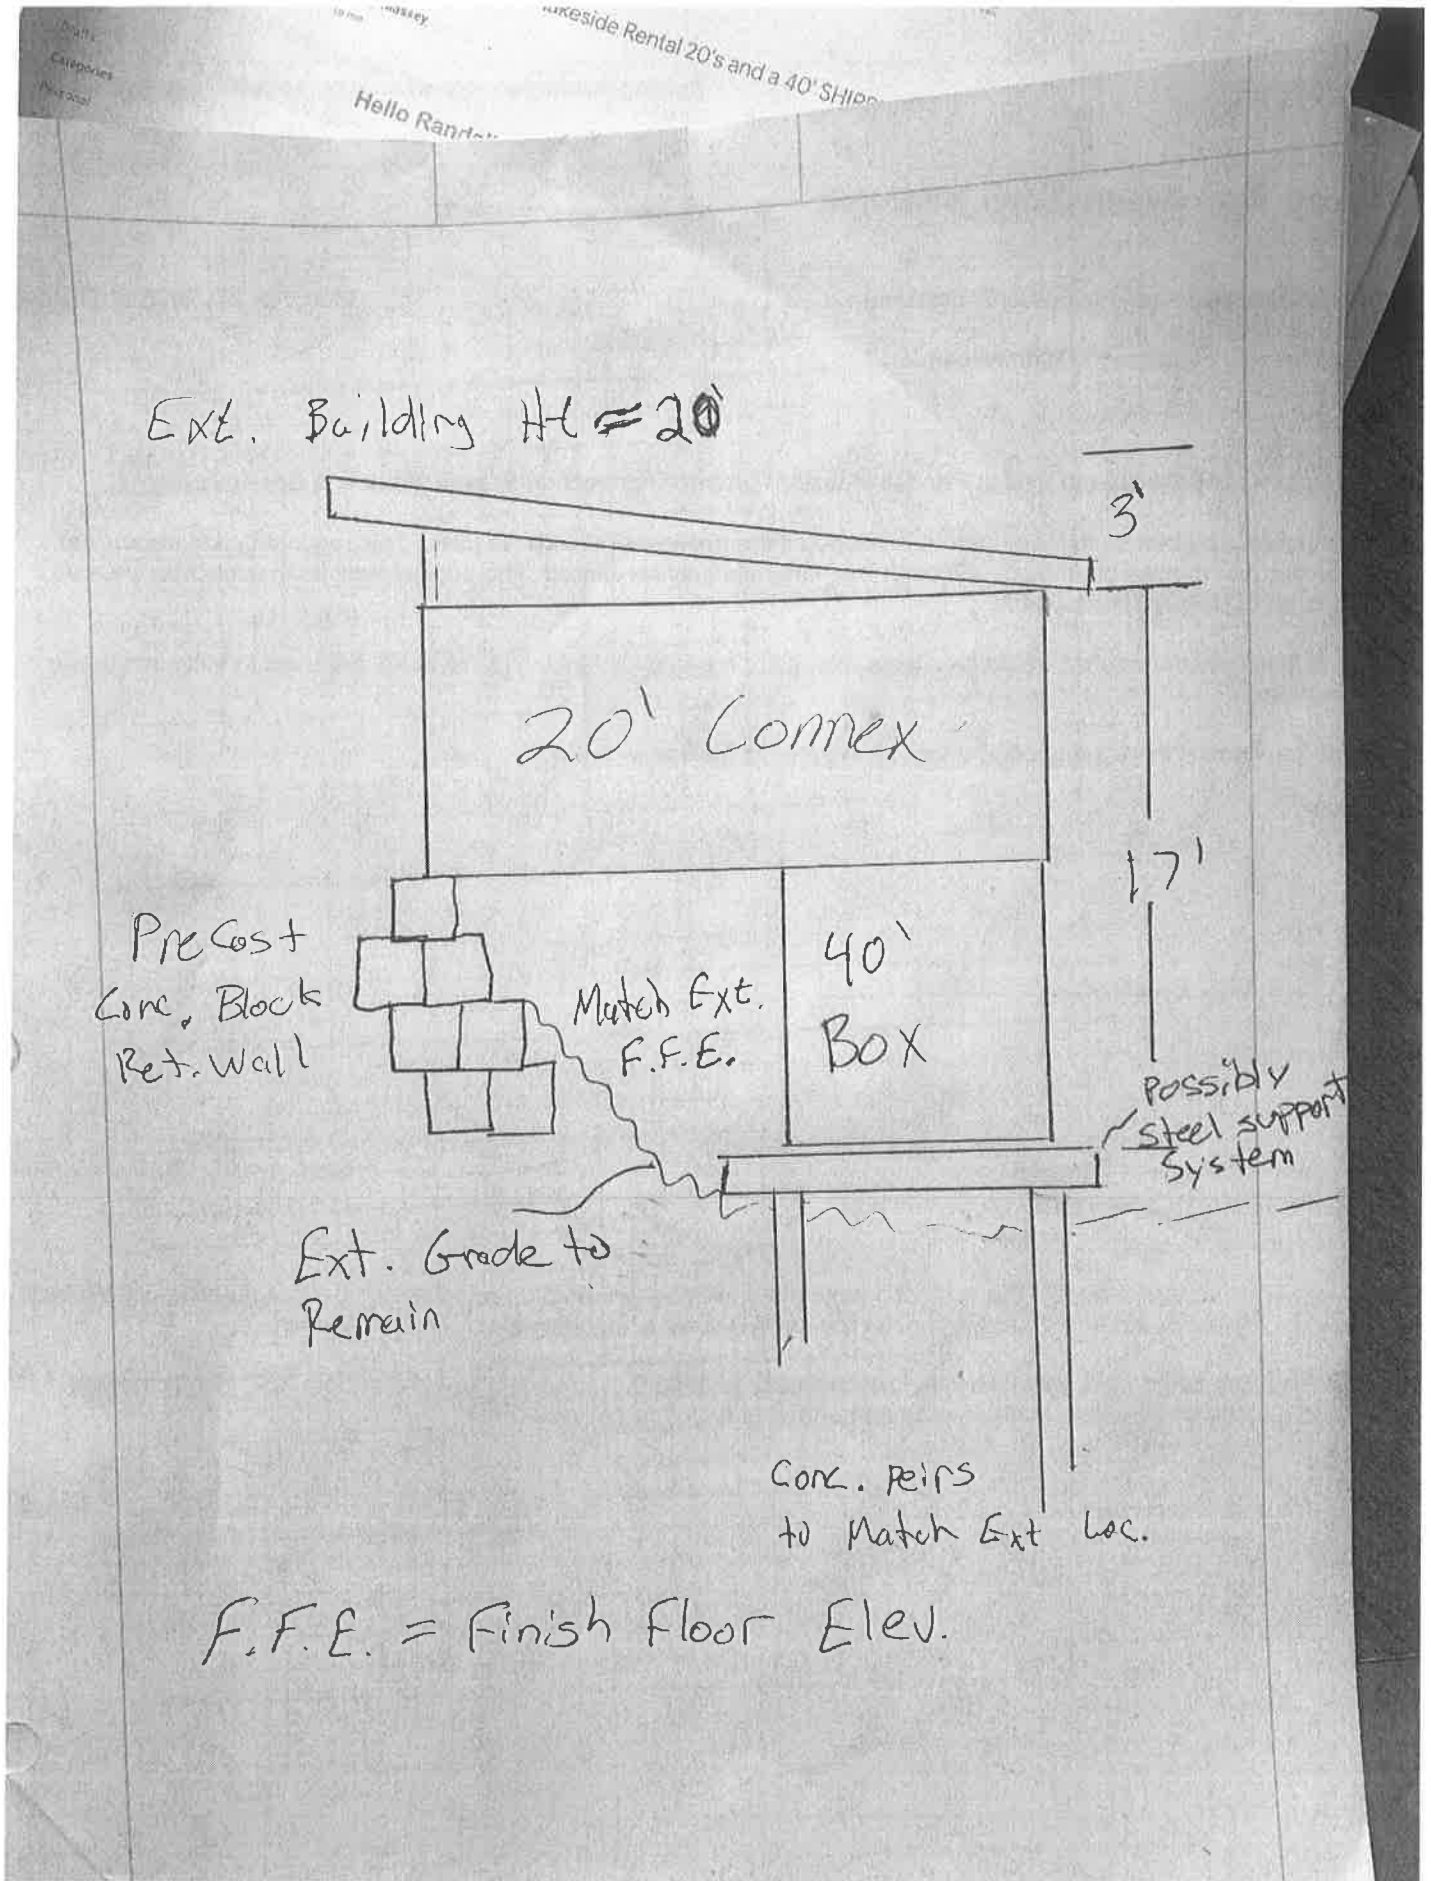 Drafts
Categories
Personal
Massey
Lakeside Rental 20's and a 40' SHIPP
Hello Rand
Ext. Building Ht = 20'
3'
20' Connex
17'
PreCast
Conc. Block
Ret. Wall
Match Ext.
F.F.E.
40'
Box
Possibly
steel support
System
Ext. Grade to
Remain
Conc. peirs
to Match Ext Loc.
F.F.E. = Finish Floor Elev.